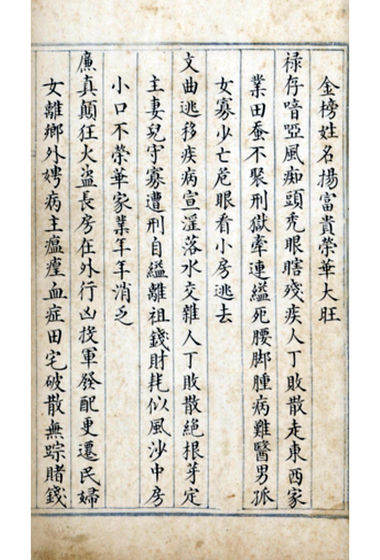 金榜姓名揚富貴榮華大旺
祿存喑啞風痴頭秃眼瞎殘疾人丁敗散走東西家
業田蚕不裝刑獄牽連縊死腰脚腫病難醫男孤
女寡少亡危眼看小房逃去
文曲逃移疾病宣淫落水交雜人丁敗散絕根芽定
主妻兒守寡遭刑自縊離祖錢財耗似風沙中房
小口不榮華家業年年消乏
廉真顛狂火盜長房在外行凶投軍發配更遷民婦
女離鄉外娉病主瘟㾮血症田宅破散無踪賭錢